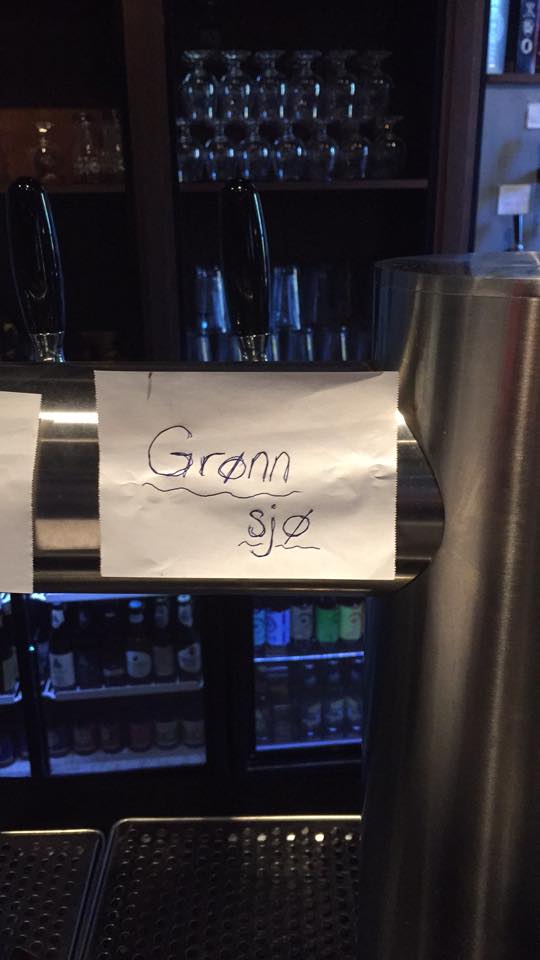 Grønn
sjø